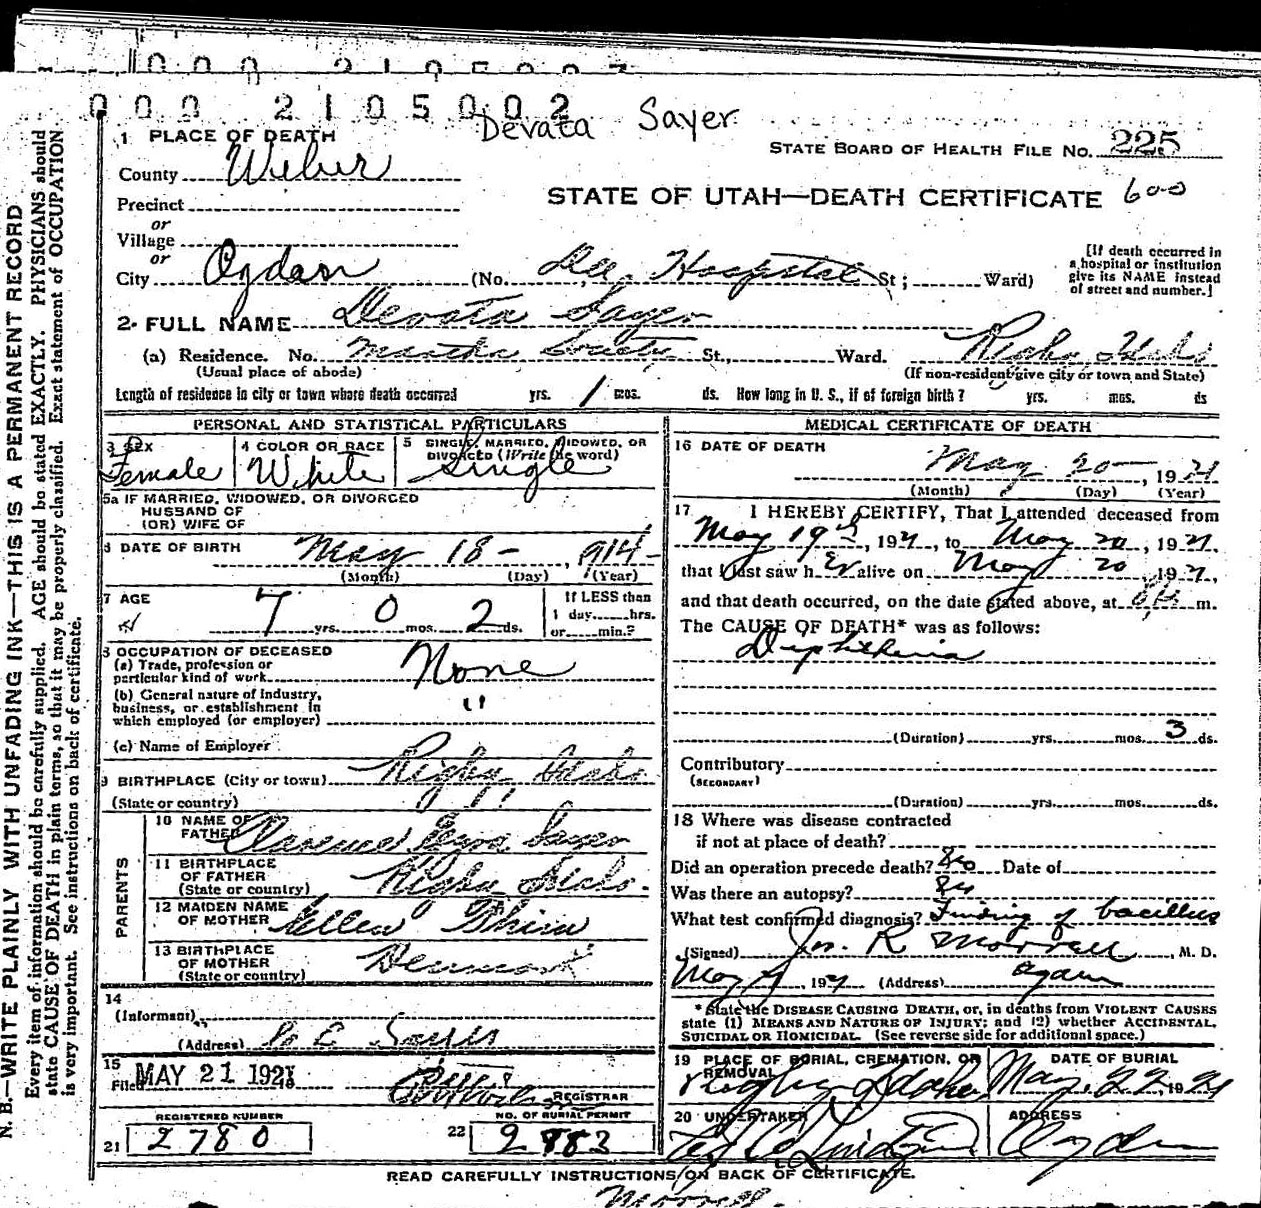 000 2105002
Devata Sayer
1 PLACE OF DEATH
STATE BOARD OF HEALTH FILE NO. 225
County Weber
STATE OF UTAH—DEATH CERTIFICATE 600
Precinct
or
Village
or
City Ogden (No. Dee Hospital St; Ward)
[If death occurred in a hospital or institution give its NAME instead of street and number.]
2. FULL NAME Devata Sayer
(a) Residence. No. Martha Society St., Ward. Rigby Idaho
(Usual place of abode) (If non-resident give city or town and State)
Length of residence in city or town where death occurred yrs. 1 mos. ds. How long in U. S., if of foreign birth? yrs. mos. ds
PERSONAL AND STATISTICAL PARTICULARS
3 SEX Female
4 COLOR OR RACE White
5 SINGLE, MARRIED, WIDOWED, OR DIVORCED (Write the word) Single
5a IF MARRIED, WIDOWED, OR DIVORCED
HUSBAND OF
(OR) WIFE OF
6 DATE OF BIRTH May 18 - 1914 -
(Month) (Day) (Year)
7 AGE 7 yrs. 0 mos. 2 ds.
If LESS than
1 day hrs.
or min.?
8 OCCUPATION OF DECEASED
(a) Trade, profession or
particular kind of work None
(b) General nature of Industry,
business, or establishment in "
which employed (or employer)
(c) Name of Employer
9 BIRTHPLACE (City or town) Rigby, Idaho
(State or country)
PARENTS
10 NAME OF
FATHER Clarence Sayer
11 BIRTHPLACE
OF FATHER
(State or country) Rigby Idaho.
12 MAIDEN NAME
OF MOTHER Ellen
13 BIRTHPLACE
OF MOTHER
(State or country) Denmark
14
(Informant)
(Address) C E Sayer
15
Filed MAY 21 1921
REGISTRAR
REGISTERED NUMBER
21 2780
NO. OF BURIAL PERMIT
22 2883
MEDICAL CERTIFICATE OF DEATH
16 DATE OF DEATH May 20 - , 1921
(Month) (Day) (Year)
17 I HEREBY CERTIFY, That I attended deceased from
May 19th, 1921, to May 20, 1921,
that I last saw her alive on May 20, 1921,
and that death occurred, on the date stated above, at m.
The CAUSE OF DEATH* was as follows:
Diphtheria
(Duration) yrs. mos. 3 ds.
Contributory
(SECONDARY)
(Duration) yrs. mos. ds.
18 Where was disease contracted
if not at place of death?
Did an operation precede death? No Date of
Was there an autopsy? No
What test confirmed diagnosis? Finding of bacillus
(Signed) Jos. R Morrell, M. D.
May, 1921 (Address) Ogden
* State the DISEASE CAUSING DEATH, or, in deaths from VIOLENT CAUSES
state (1) MEANS AND NATURE OF INJURY; and (2) whether ACCIDENTAL,
SUICIDAL OR HOMICIDAL. (See reverse side for additional space.)
19 PLACE OF BURIAL, CREMATION, OR
REMOVAL Rigby Idaho
DATE OF BURIAL
May, 22, 1921
20 UNDERTAKER
ADDRESS
Ogden
READ CAREFULLY INSTRUCTIONS ON BACK OF CERTIFICATE.
Morrell.
N. B.—WRITE PLAINLY WITH UNFADING INK—THIS IS A PERMANENT RECORD
Every item of information should be carefully supplied. AGE should be stated EXACTLY. PHYSICIANS should
state CAUSE OF DEATH in plain terms, so that it may be properly classified. Exact statement of OCCUPATION
is very important. See instructions on back of certificate.